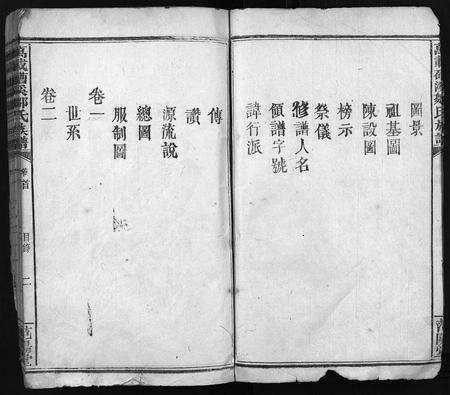 圖景
祖基圖
陳設圖
榜示
祭儀
修譜人名
領譜字號
諱行派
傳
讚
源流說
總圖
服制圖
卷一
世系
卷二
卷首
目錄
二